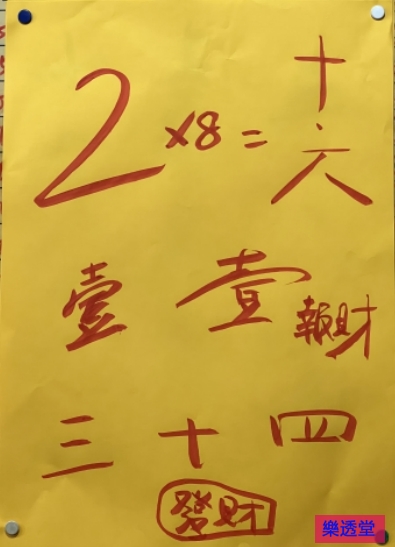 2×8=十六
壹 壹 報財
三十四
發財
樂透堂